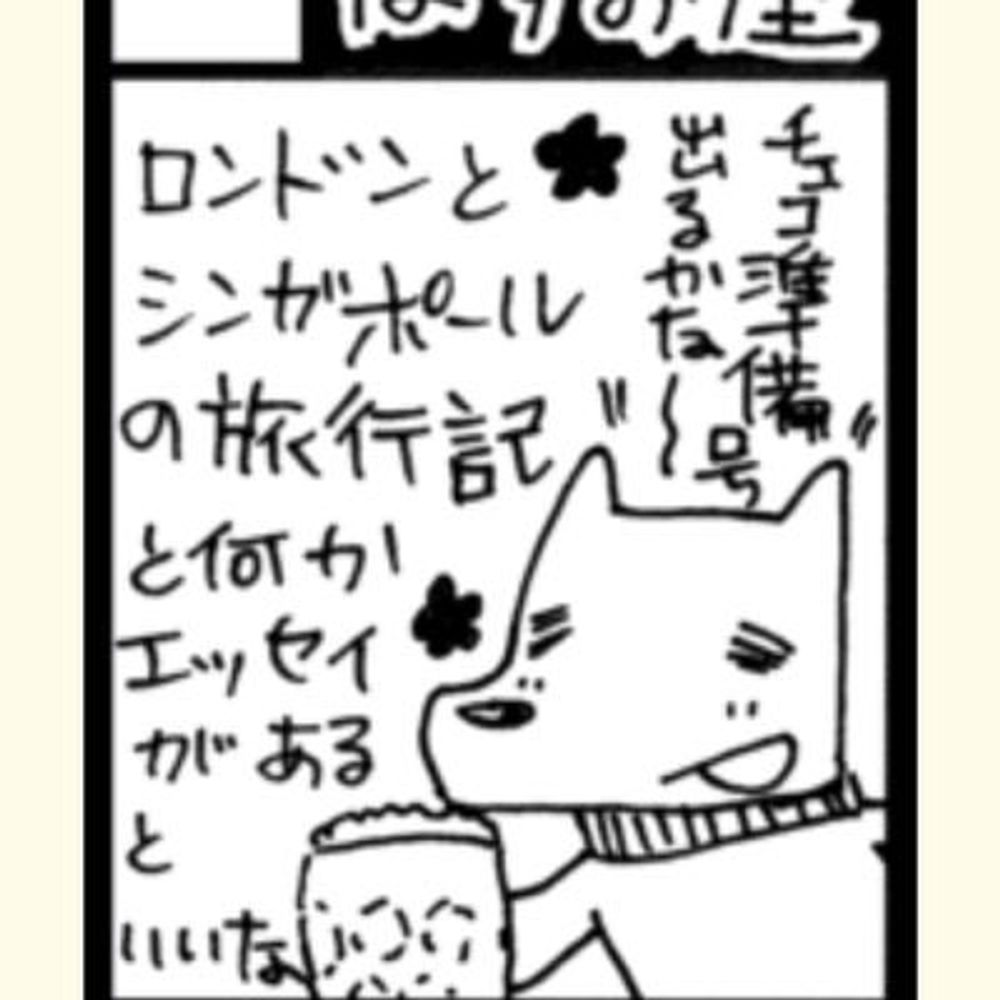 チェコ準備号
出るかな～
ロンドンと
シンガポール
の旅行記
と何か
エッセイ
がある
と
いいな